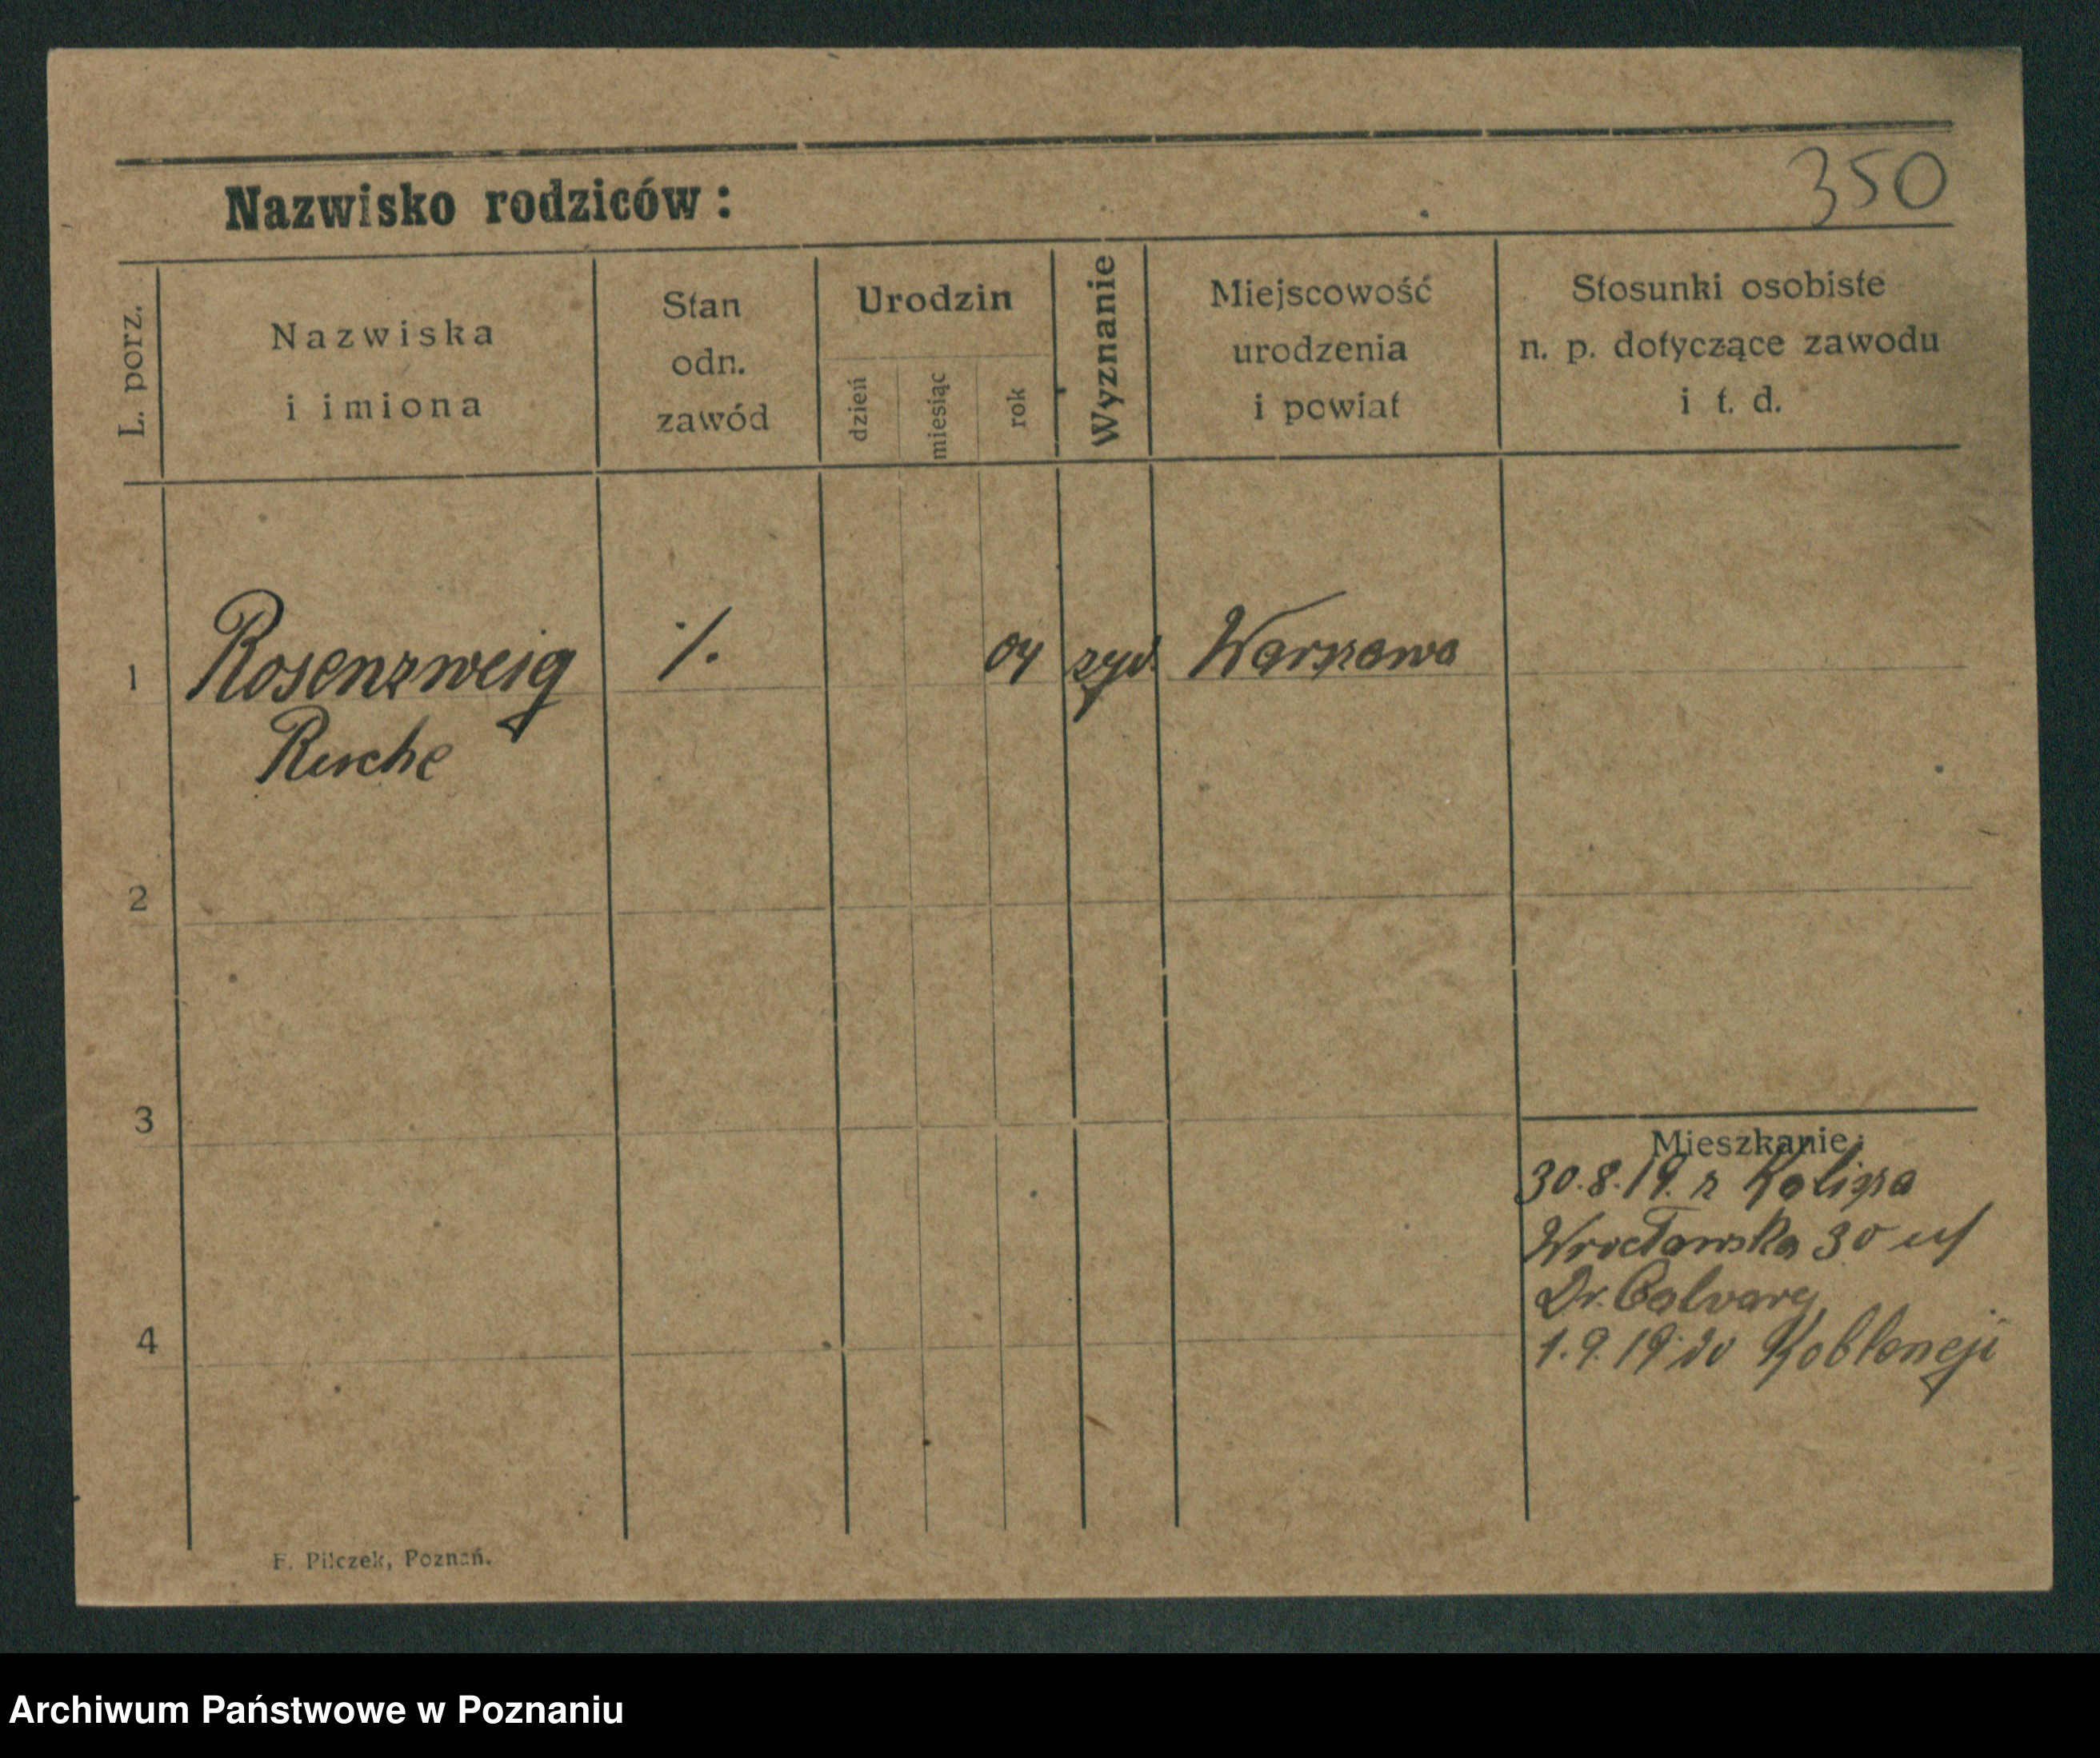 350
Nazwisko rodziców:
L. porz.
Nazwiska
i imiona
Stan
odn.
zawód
Urodzin
dzień
miesiąc
rok
Wyznanie
Miejscowość
urodzenia
i powiat
Stosunki osobiste
n. p. dotyczące zawodu
i t. d.
1 Rosenzweig ·/. 04 żyd. Warszawa
2
3
4
Mieszkanie:
30.8.19. z Kalisza
Wrocławska 30 u
Dr. Calvary
1.9.19 do Koblencji
F. Pilczek, Poznań.
Archiwum Państwowe w Poznaniu